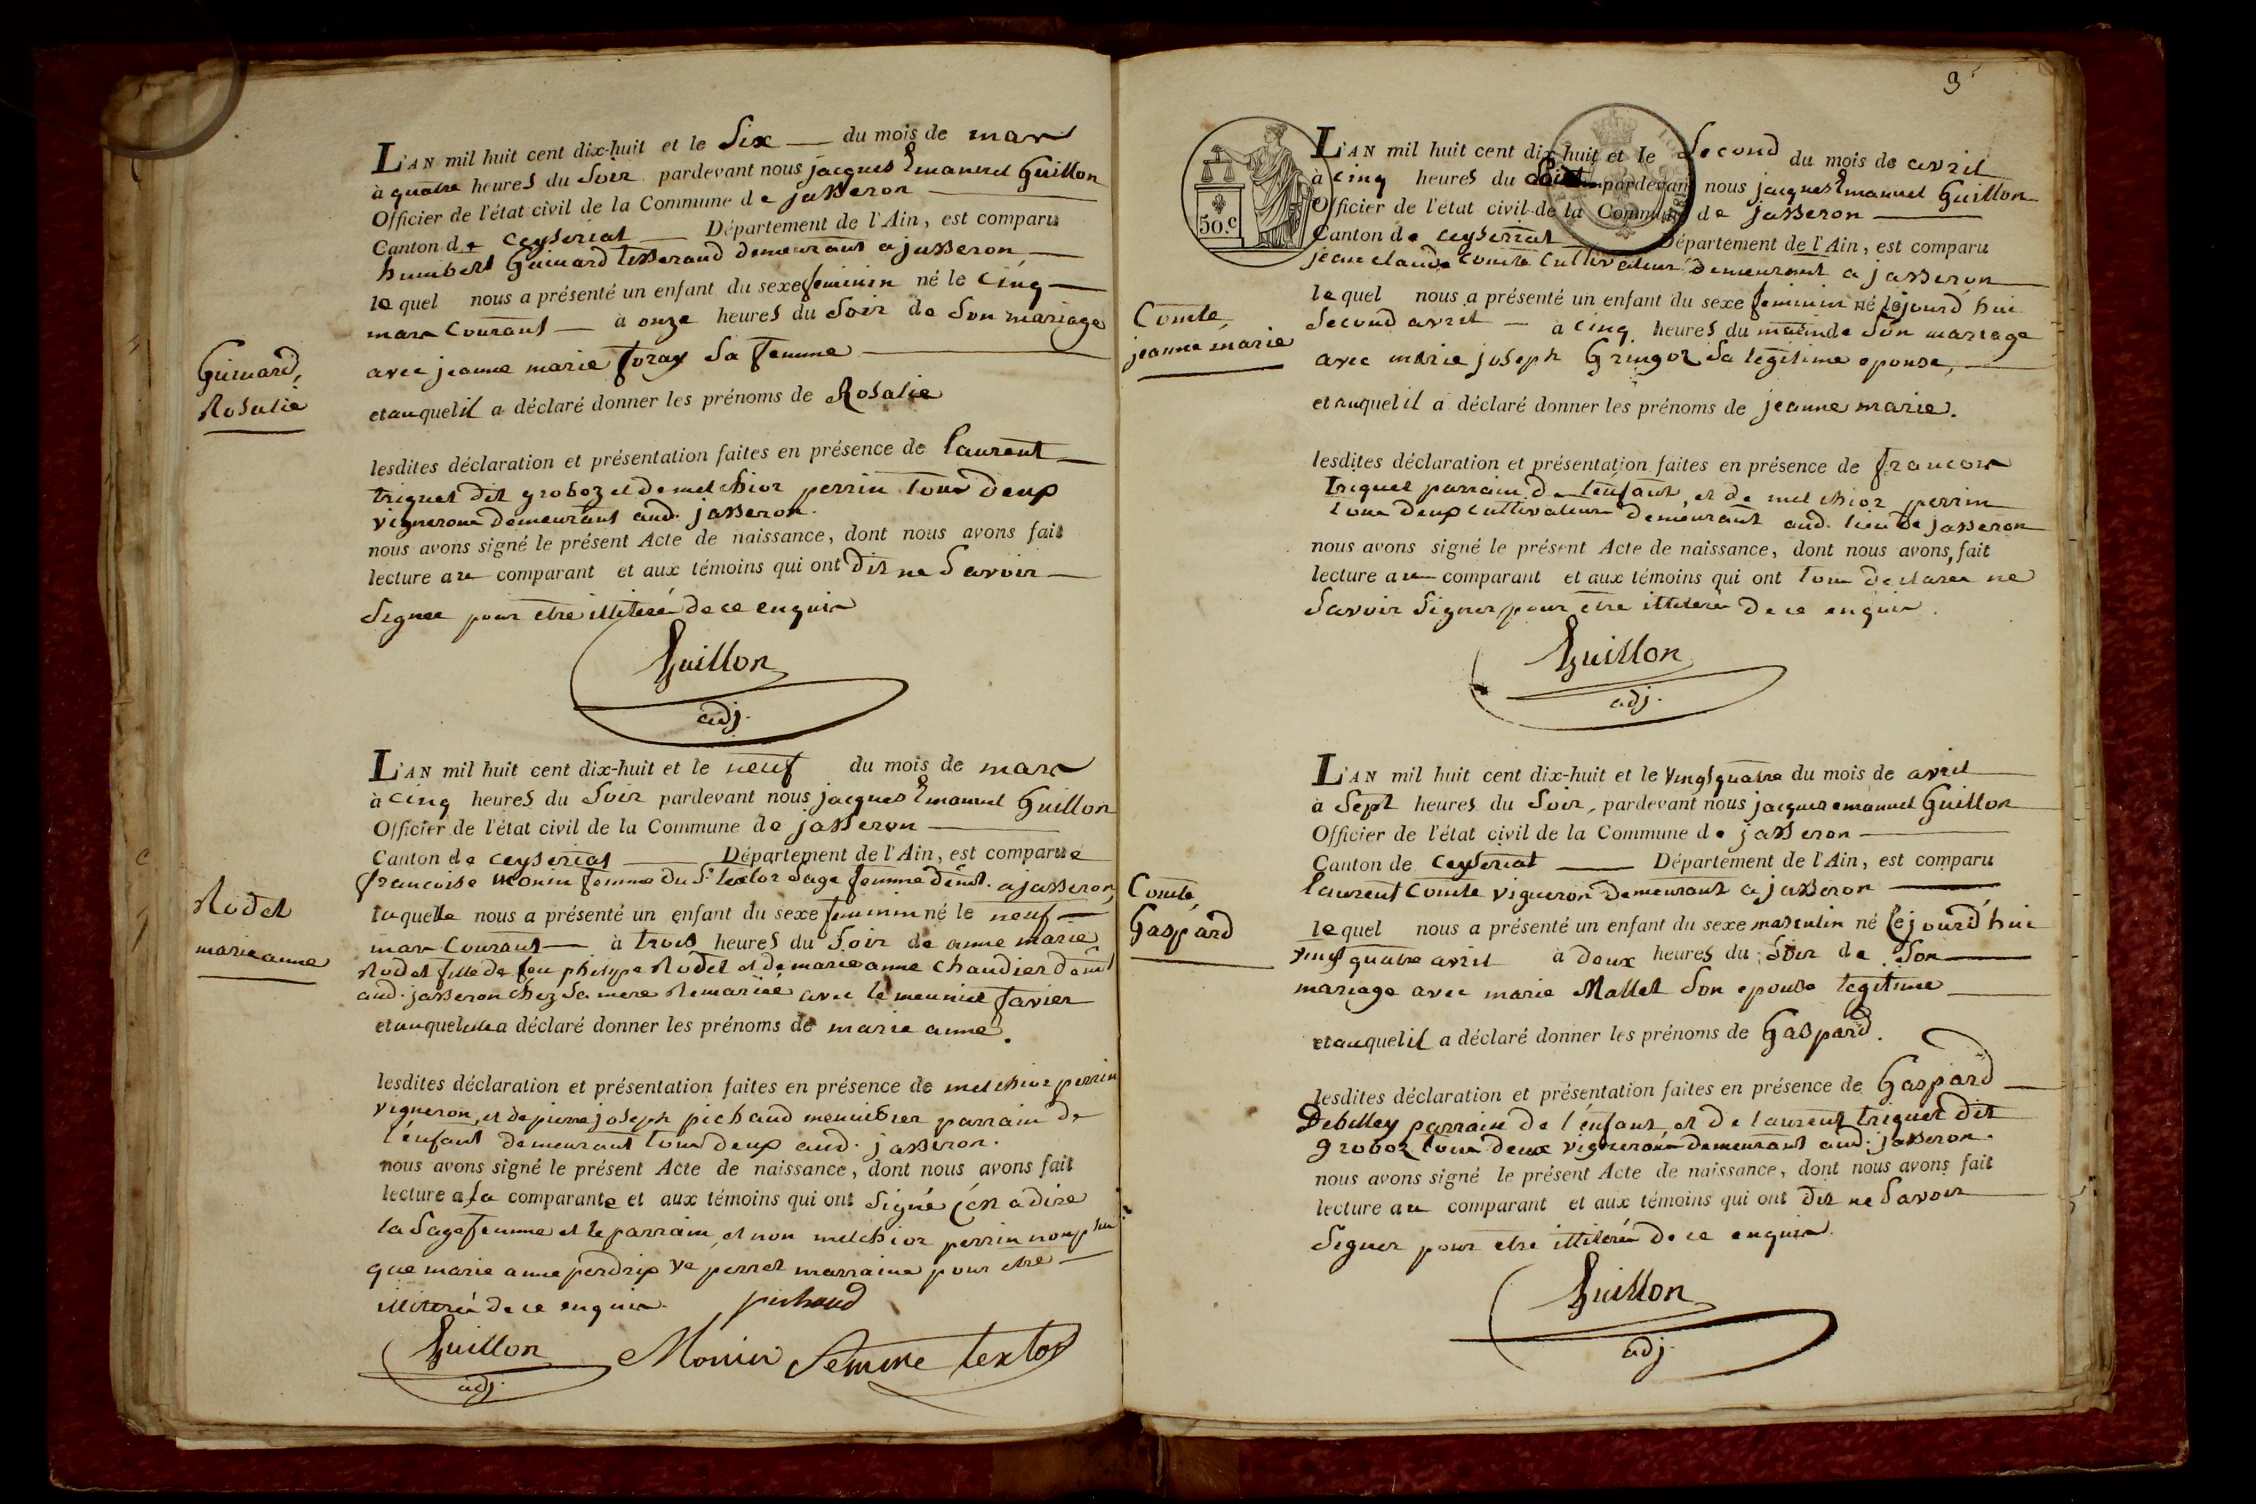 L'AN mil huit cent dix-huit et le Six du mois de mars
à quatre heures du Soir pardevant nous jacques Emanuel Guillon
Officier de l'état civil de la Commune de jasseron
Canton de Ceyseriat Département de l'Ain, est comparu
humbert Guinard tisserand demeurant a jasseron
le quel nous a présenté un enfant du sexe feminin né le cinq
mars courant à onze heures du Soir de Son mariage
avec jeanne marie foray Sa femme
Guinard,
Rosalie
et auquel il a déclaré donner les prénoms de Rosalie
lesdites déclaration et présentation faites en présence de Laurent
triquet dit groboz et de melchior perrin tous deux
vignerons demeurant aud. jasseron.
nous avons signé le présent Acte de naissance, dont nous avons fait
lecture au comparant et aux témoins qui ont dit ne Savoir
Signer pour etre illiteré de ce enquis
Guillon
adj.
L'AN mil huit cent dix-huit et le neuf du mois de mars
à cinq heures du Soir pardevant nous jacques Emanuel Guillon
Officier de l'état civil de la Commune de jasseron
Canton de ceyseriat Département de l'Ain, est comparue
francoise Monin femme du Sr. textor Sage femme demt. a jasseron,
laquelle nous a présenté un enfant du sexe feminin né le neuf
mars courant à trois heures du Soir de anne marie
Rodet fille de feu philippe Rodet et de marie anne chaudier demt.
aud. jasseron chez Sa mere Remariée avec le meunier favier
Rodet
marie anne
et auquel elle a déclaré donner les prénoms de marie anne.
lesdites déclaration et présentation faites en présence de melchior perrin
vigneron, et de pierre joseph pichaud menuisier parrain de
l'enfant demeurant tous deux aud. jasseron.
nous avons signé le présent Acte de naissance, dont nous avons fait
lecture a la comparante et aux témoins qui ont Signé c'est à dire
la Sage femme et le parrain, et non melchior perrin non plus
que marie anne perdrix ve perret marraine pour etre
illiteré de ce enquis. pichaud
Guillon Monin femme textor
adj.
3
50.c
L'AN mil huit cent dix-huit et le Second du mois de avril
à cinq heures du Soir pardevant nous jacques Emanuel Guillon
Officier de l'état civil de la Commune de jasseron
Canton de ceyseriat Département de l'Ain, est comparu
jean claude comte cultivateur demeurant a jasseron
le quel nous a présenté un enfant du sexe feminin né cejourd'hui
Second avril à cinq heures du matin de Son mariage
avec marie joseph Gringoz Sa legitime epouse,
Comte,
jeanne marie
et auquel il a déclaré donner les prénoms de jeanne marie.
lesdites déclaration et présentation faites en présence de francois
triquet parrain de l'enfant, et de melchior perrin
tous deux cultivateurs demeurant aud. lieu de jasseron
nous avons signé le présent Acte de naissance, dont nous avons fait
lecture au comparant et aux témoins qui ont tous declaré ne
Savoir Signer pour etre illiteré de ce enquis.
Guillon
adj.
L'AN mil huit cent dix-huit et le vingt quatre du mois de avril
à Sept heures du Soir, pardevant nous jacques emanuel Guillon
Officier de l'état civil de la Commune de jasseron
Canton de Ceyseriat Département de l'Ain, est comparu
laurent Comte vigneron demeurant a jasseron
le quel nous a présenté un enfant du sexe masculin né cejourd'hui
vingt quatre avril à deux heures du Soir de Son
mariage avec marie Mallet Son epouse legitime
Comte,
Gaspard
et auquel il a déclaré donner les prénoms de Gaspard.
lesdites déclaration et présentation faites en présence de Gaspard
Debilley parrain de l'enfant et de laurent triquet dit
groboz tous deux vignerons demeurant aud. jasseron.
nous avons signé le présent Acte de naissance, dont nous avons fait
lecture au comparant et aux témoins qui ont dit ne Savoir
Signer pour etre illiteré de ce enquis.
Guillon
adj.